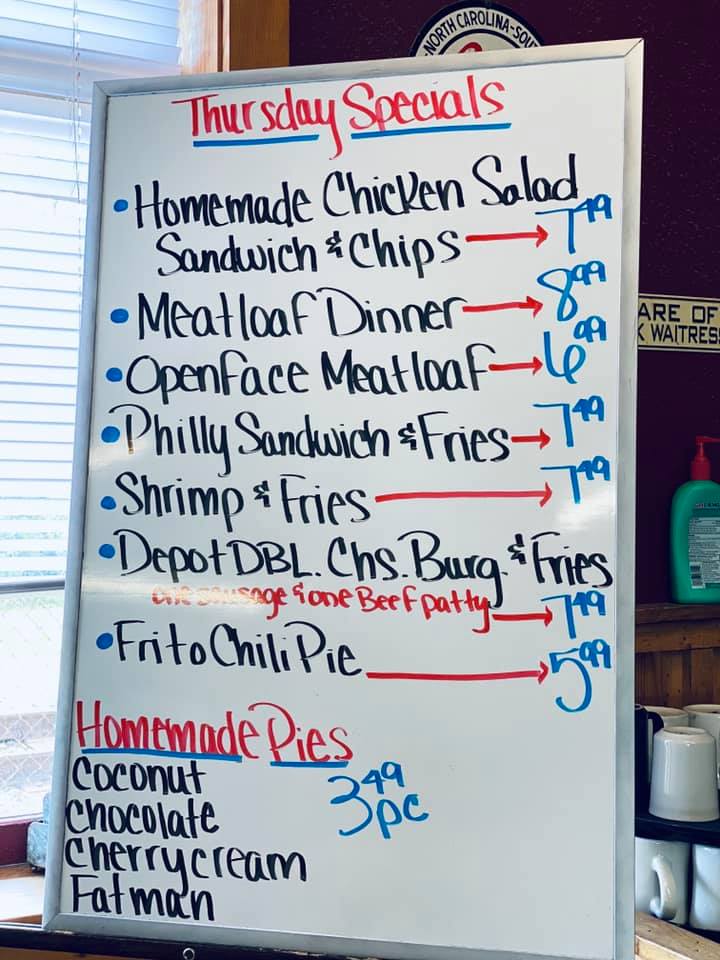 NORTH CAROLINA-SOU
Thursday Specials
• Homemade Chicken Salad
Sandwich & Chips → 7.49
• Meatloaf Dinner → 8.99
• Openface Meatloaf → 6.99
• Philly Sandwich & Fries → 7.49
• Shrimp & Fries → 7.49
• Depot DBL. Chs. Burg. & Fries
one sausage & one Beef patty → 7.49
• Frito Chili Pie → 5.99
Homemade Pies
Coconut 3.49
Chocolate pc
Cherry cream
Fatman
ARE OF
WAITRES